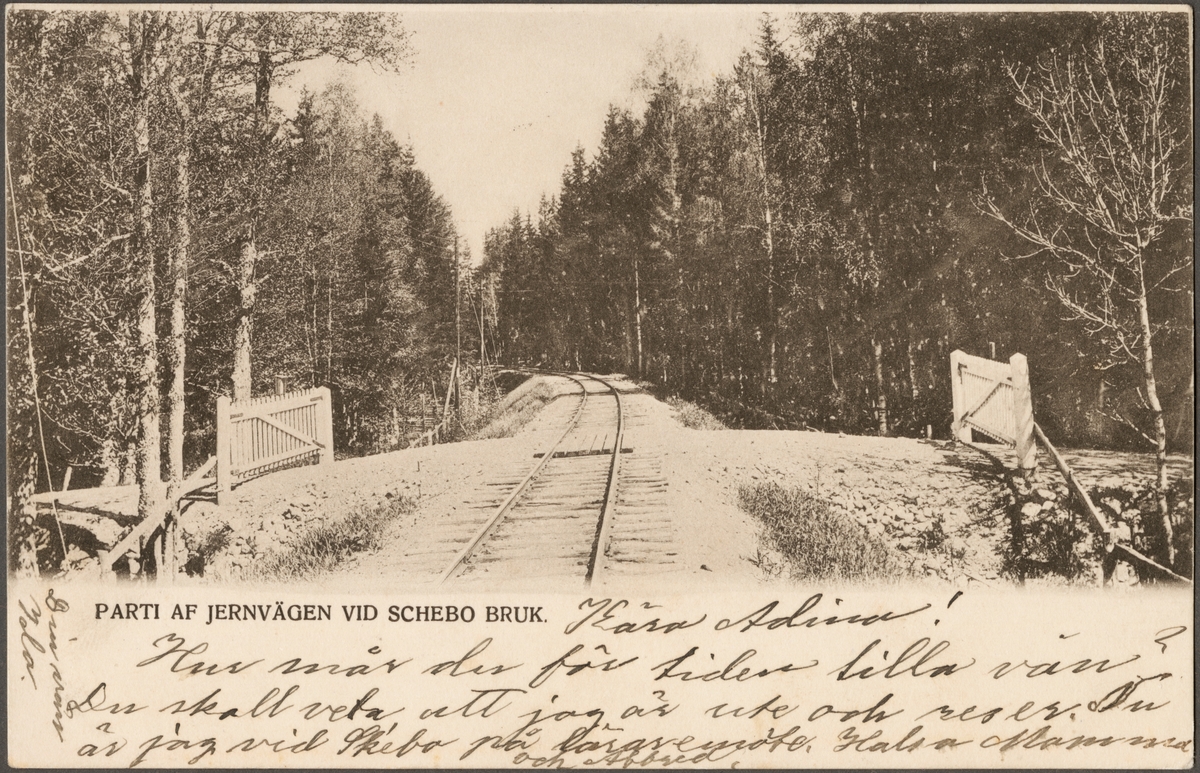 PARTI AF JERNVÄGEN VID SCHEBO BRUK.
Kära Adina!
Hur mår du för tiden lilla vän?
Du skall veta att jag är ute och reser. Nu
är jag vid Skebo på läraremöte. Halsa Mamma
och Abbred.
Din vän